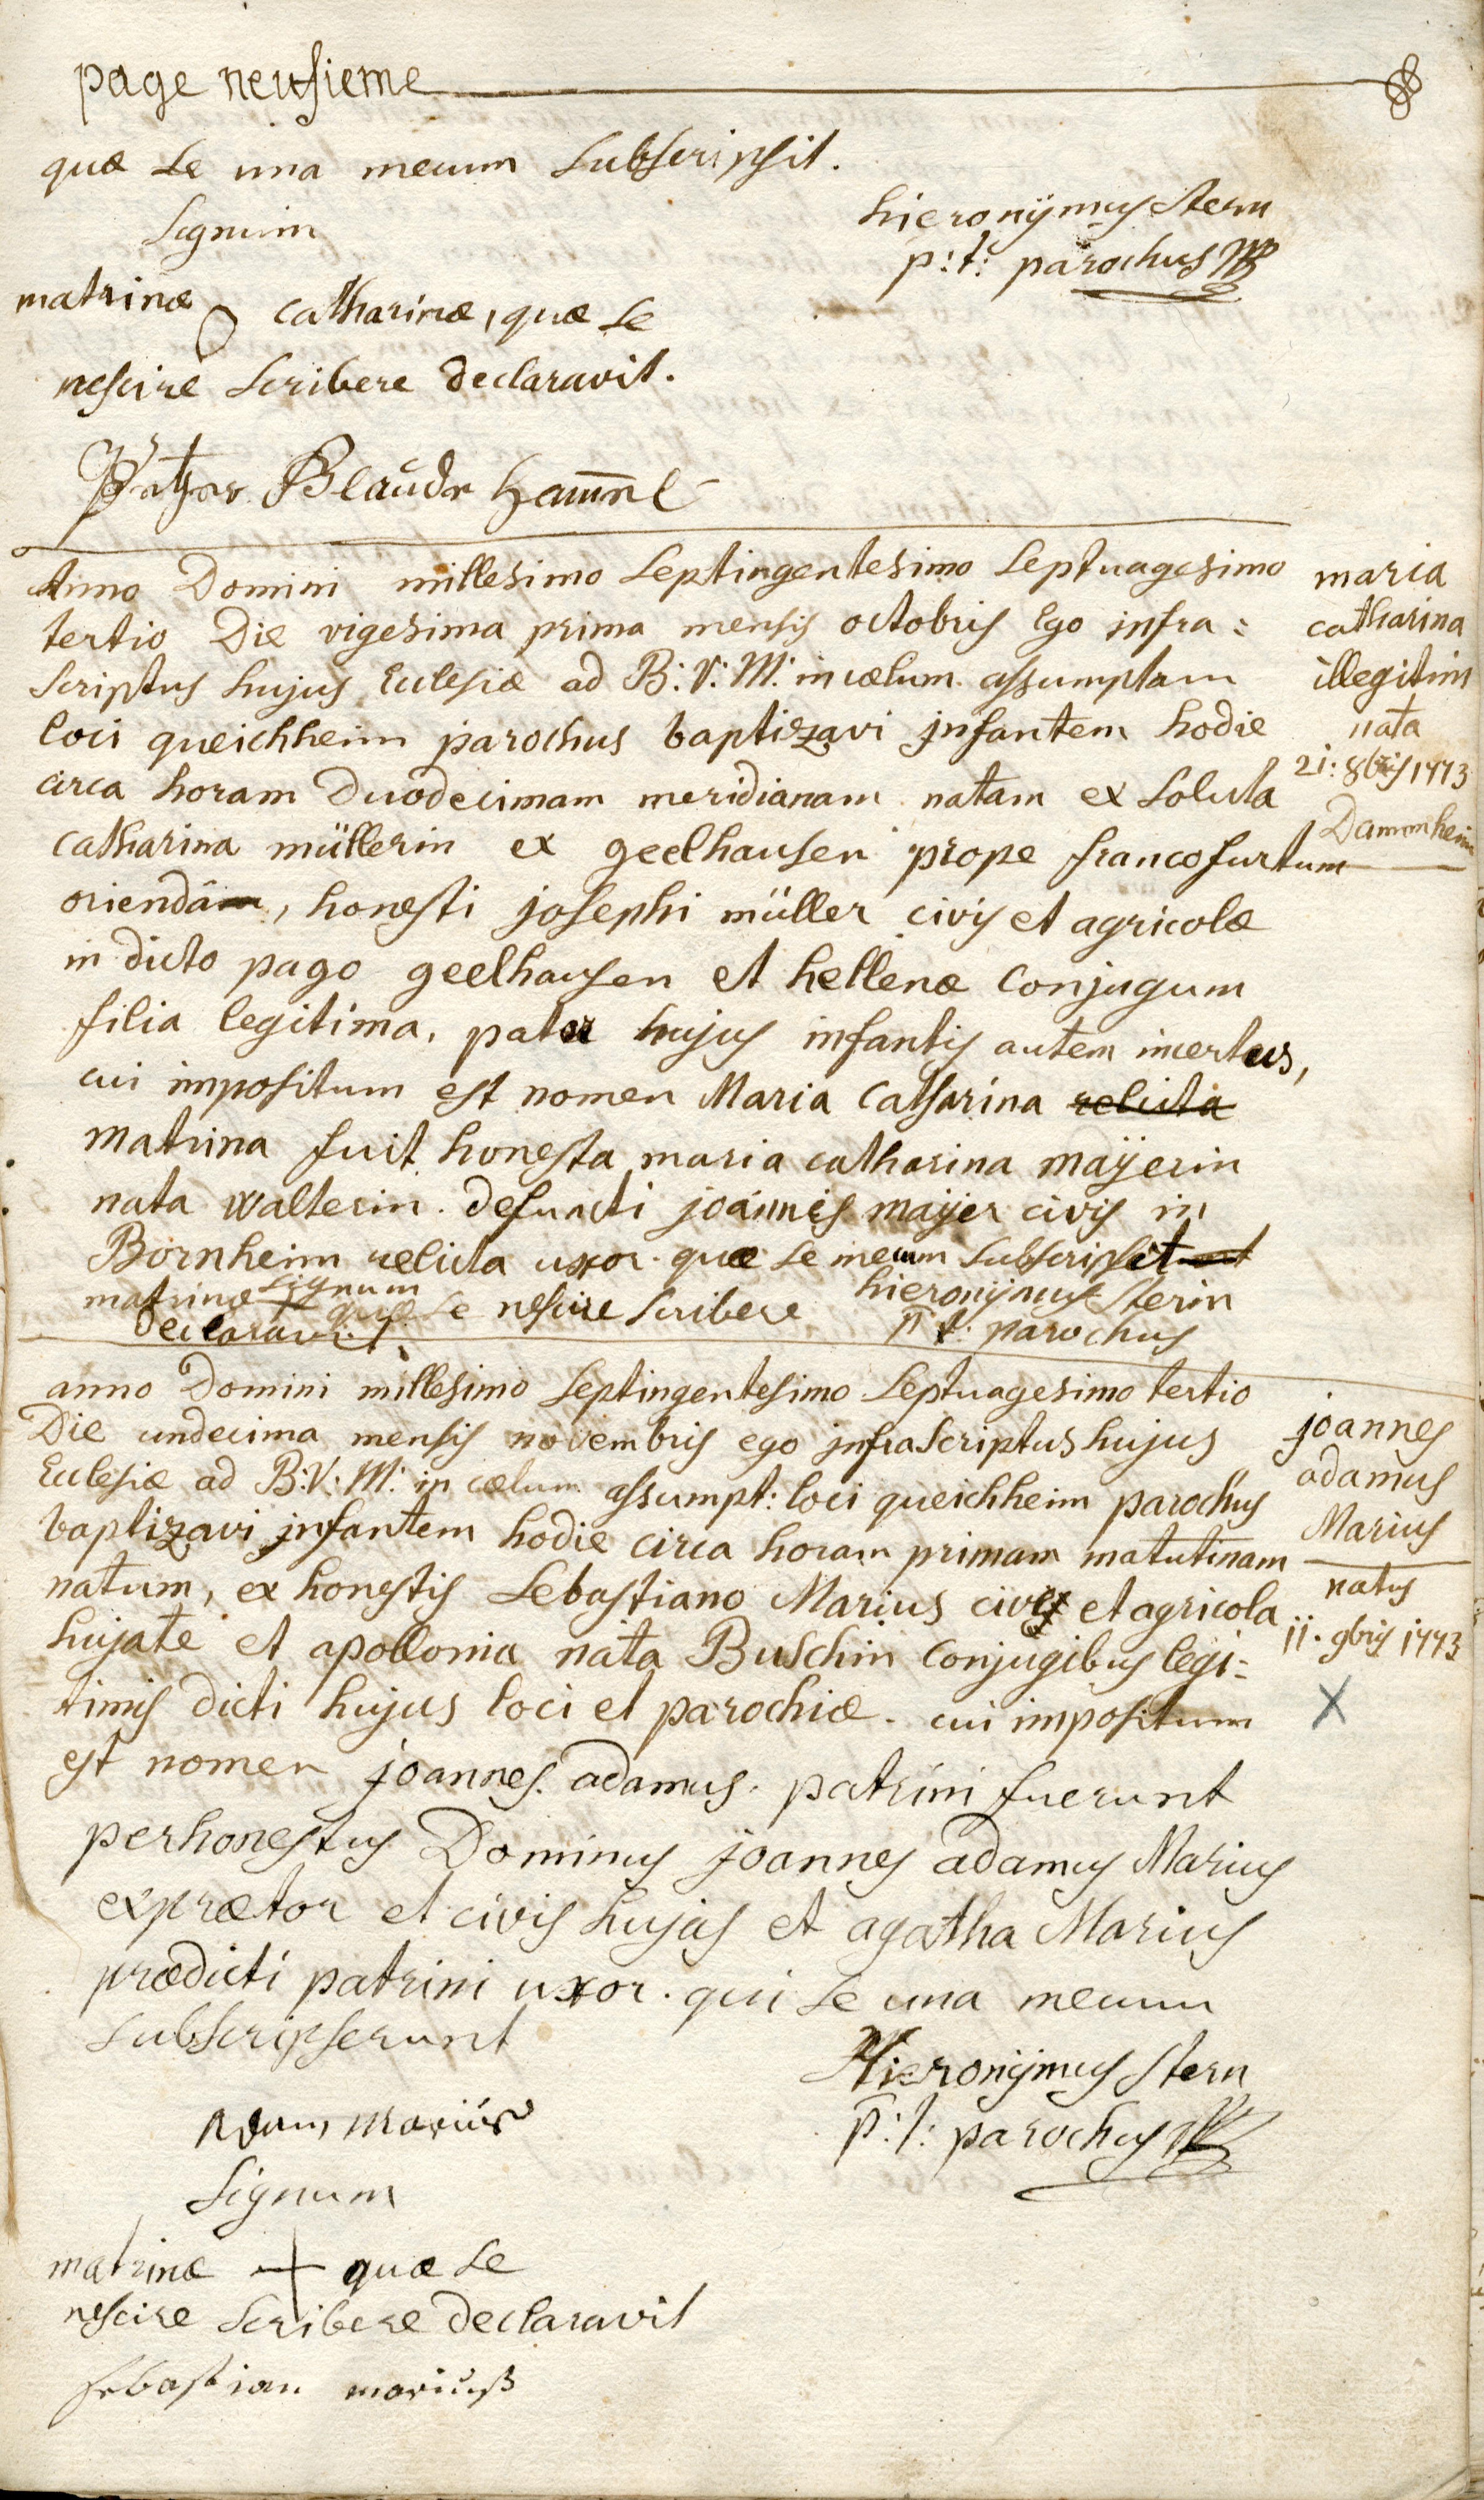 page neufieme
quæ se una mecum subscripsit.
signum
hieronijmus stern
p: t: parochus
matrinæ catharinæ, quæ se
nescire scribere declaravit.
Anno Domini millesimo septingentesimo septuagesimo
tertio Die vigesima prima mensis octobris ego infra=
scriptus hujus Eclesiæ ad B: V: M: in cœlum assumptam
loci queichheim parochus baptizavi jnfantem hodie
circa horam Duodecimam meridianam natam ex soluta
catharina müllerin ex geelhausen prope francofurtum
oriendâ, honesti josephi müller civis et agricolæ
in dicto pago geelhausen et hellenæ conjugum
filia legitima, pater hujus infantis autem incertus,
cui impositum est nomen Maria Catharina relicta
matrina fuit honesta maria catharina maÿerin
nata walterin. defuncti joannis maÿer civis in
Bornheim relicta uxor. quæ se mecum subscripsit
matrinæ signum quæ se nescire scribere
declaravit.
hieronijmus sterin
p t. parochus
maria
catharina
illegitim
nata
21: 8bris 1773
Dammheim
anno Domini millesimo septingentesimo septuagesimo tertio
Die undecima mensis novembris ego jnfrascriptus hujus
Eclesiæ ad B: V: M: in cœlum assumpt: loci queichheim parochus
baptizavi jnfantem hodie circa horam primam matutinam
natum, ex honestis Sebastiano Marius cive et agricola
hujate et apollonia nata Buschin conjugibus legi=
timis dicti hujus loci et parochiæ. cui impositum
est nomen joannes. adamus. patrini fuerunt
perhonestus Dominus joannes adamus Marius
exprætor et civis hujas et agatha Marius
prædicti patrini uxor. qui se una mecum
subscripserunt
joannes
adamus
Marius
natus
11. 9bris 1773
X
Hieronijmus stern
p: t: parochus
Adam Mariús
Signum
matrinæ + quæ se
nescire scribere declaravit
sebastian mariúß